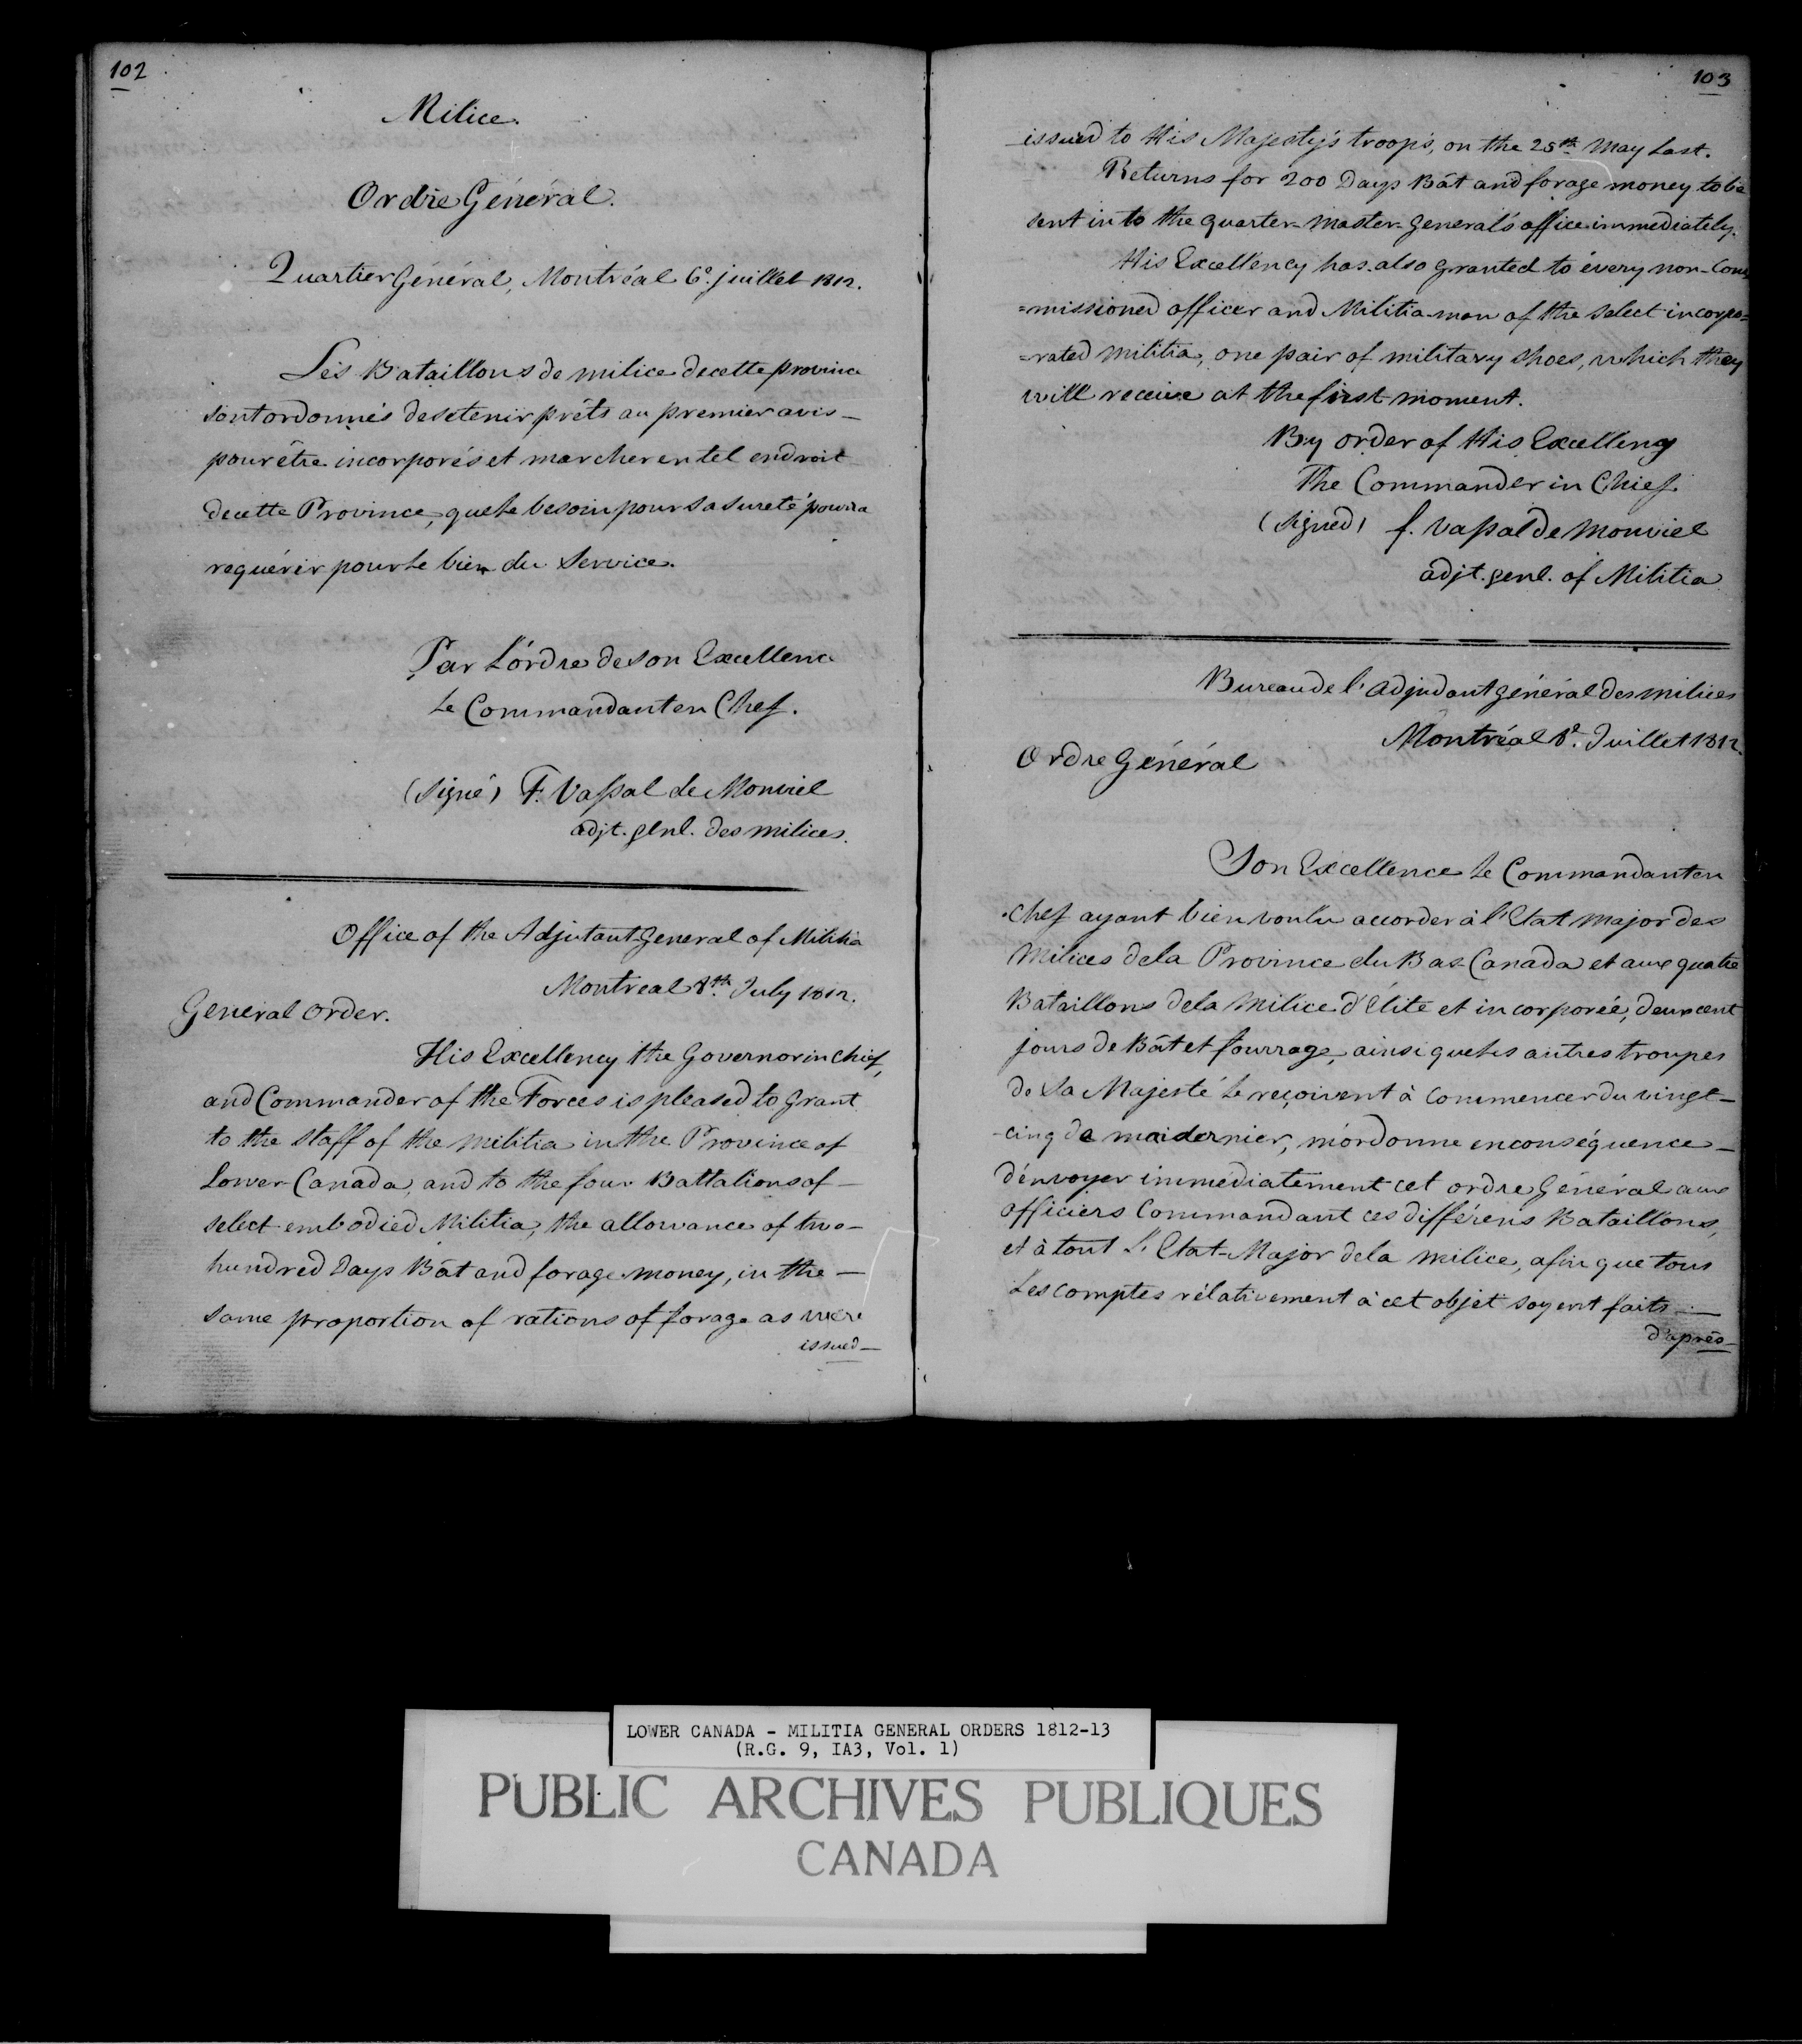 102
Milice.
Ordre Général.
Quartier Général, Montréal 6e. juillet 1812.
Les Bataillons de milice de cette province
sont ordonnés de se tenir prêts au premier avis –
pour être incorporés et marcher en tel endroit
de cette Province, que le besoin pour sa sureté pourra
requérir pour le bien du Service.
Par L'órdre de son Excellence
Le Commandant en Chef.
(signé) F. Vassal de Monviel
adjt. genl. des milices.
Office of the Adjutant General of Militia
Montreal 8th. July 1812.
General order.
His Excellency the Governor in Chief,
and Commander of the Forces is pleased to Grant
to the staff of the militia in the Province of
Lower-Canada, and to the four Battalions of –
select embodied Militia, the allowance of two –
hundred Days Bât and forage money, in the –
same proportion of rations of forage as were
issued –
103
issued to His Majesty's troops, on the 25th. May Last.
Returns for 200 Days Bât and forage money to be
sent in to the quarter-master-general's office immediately.
His Excellency has also granted to every non-Com
=missioned officer and Militia man of the select incorpo=
=rated militia, one pair of military shoes, which they
will receive at the first moment.
By order of His Excellency
The Commander in Chief.
(signed) f. Vassal de Monviel
adjt. genl. of Militia
Bureau de l'adjudant général des milices
Montréal 8e. Juillet 1812.
Ordre Général
Son Excellence Le Commandant en
Chef ayant bien voulu accorder à l'Etat major des
Milices de la Province du Bas-Canada et aux quatre
Bataillons de la Milice d'Élite et incorporée, deux cent
jours de Bât et fourrage, ainsi que les autres troupes
de Sa Majesté Le reçoivent à commencer du vingt –
cinq de mai dernier, m'ordonne en conséquence –
d'envoyer immédiatement cet ordre Général aux
officiers Commandant ces différens Bataillons,
et à tout L'Etat-Major de la milice, afin que tous
Les comptes rélativement à cet objet soyent faits –
d'après –
LOWER CANADA - MILITIA GENERAL ORDERS 1812-13
(R.G. 9, IA3, Vol. 1)
PUBLIC ARCHIVES PUBLIQUES
CANADA